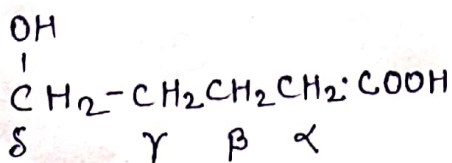 OH
CH₂-CH₂CH₂CH₂·COOH
δ γ β α